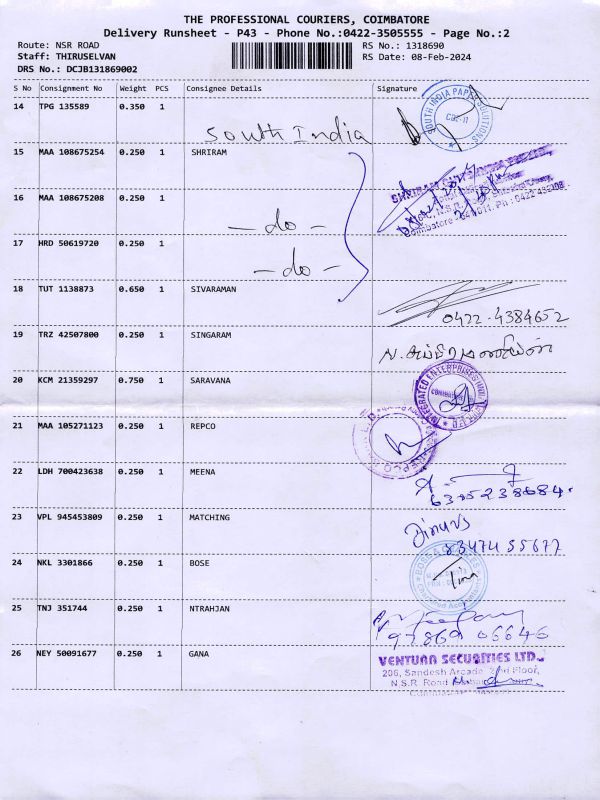 THE PROFESSIONAL COURIERS, COIMBATORE
Delivery Runsheet - P43 - Phone No.:0422-3505555 - Page No.:2
Route: NSR ROAD
RS No.: 1318690
Staff: THIRUSELVAN
RS Date: 08-Feb-2024
DRS No.: DCJB131869002
S No Consignment No Weight PCS Consignee Details Signature
14 TPG 135589 0.350 1
South India
SOUTH INDIA PAPER SOLUTIONS
CBE-11
15 MAA 108675254 0.250 1 SHRIRAM
16 MAA 108675208 0.250 1
- do -
17 HRD 50619720 0.250 1
- do -
18 TUT 1138873 0.650 1 SIVARAMAN
0422-4384652
19 TRZ 42507800 0.250 1 SINGARAM
20 KCM 21359297 0.750 1 SARAVANA
INTEGRATED ENTERPRISES
21 MAA 105271123 0.250 1 REPCO
22 LDH 700423638 0.250 1 MEENA
6395238684.
23 VPL 945453809 0.250 1 MATCHING
8347455677
24 NKL 3301866 0.250 1 BOSE
25 TNJ 351744 0.250 1 NTRAHJAN
97869 06646
26 NEY 50091677 0.250 1 GANA
VENTURA SECURITIES LTD.,
206, Sandesh Arcade, 2nd Floor,
N.S.R. Road